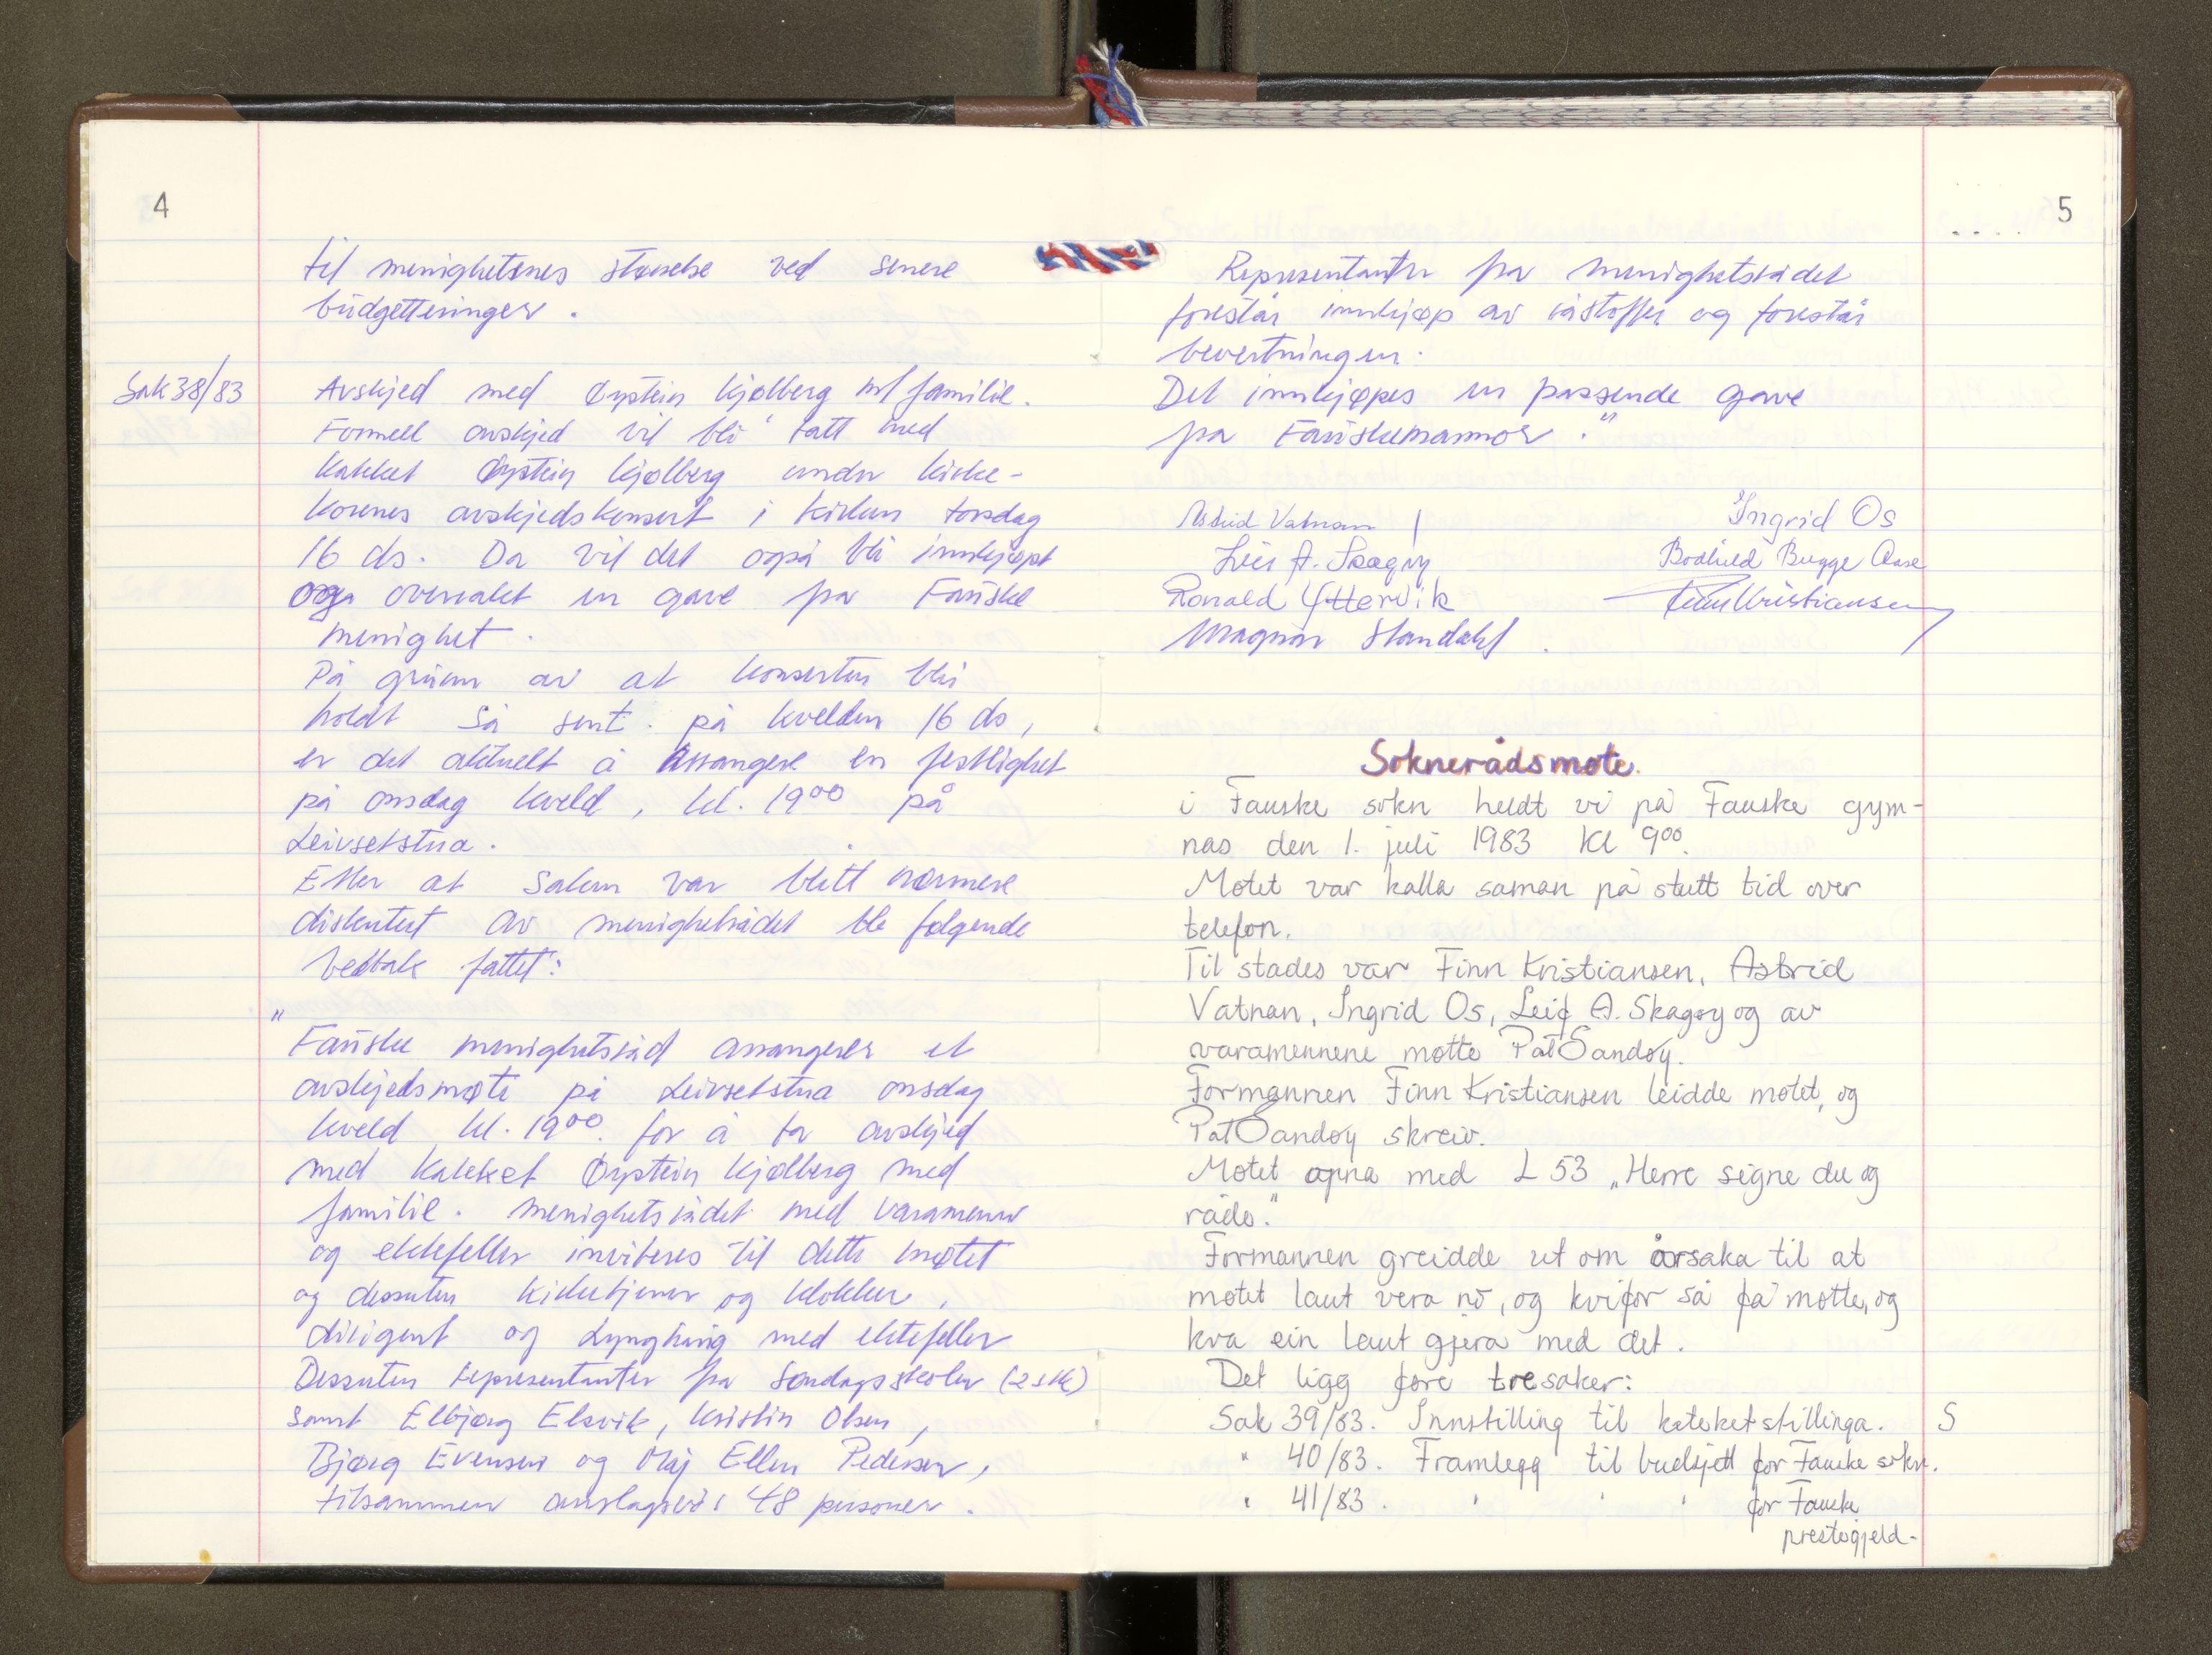 4
til menighetenes størrelse ved senere
budgetteringer.
Sak 38/83
Avskjed med Øystein Kjølberg m/familie.
Formell avskjed vil bli tatt med
kateket Øystein Kjølberg under kirke-
korenes avskjedskonsert i kirken torsdag
16 ds. Da vil det også bli innkjøpt
og overrakt en gave fra Fauske
menighet.
På grunn av at konserten blir
holdt så sent på kvelden 16 ds,
er det aktuelt å arrangere en festlighet
på onsdag kveld, kl. 19⁰⁰ på
Leivsetstua.
Etter at saken var blitt nærmere
diskutert av menighetsrådet ble følgende
vedtak fattet:
"Fauske menighetsråd arrangerer et
avskjedsmøte på Leivsetstua onsdag
kveld kl. 19⁰⁰. for å ta avskjed
med kateket Øystein Kjølberg med
familie. Menighetsrådet med varamenn
og ektefeller inviteres til dette møtet
og dessuten kirketjener og klokker,
dirigent og Lyngking med ektefeller
Dessuten representanter fra søndagsskolen (2 stk)
samt Elbjørg Elsvik, Kristin Olsen,
Bjørg Evensen og Maj Ellen Pedersen,
tilsammen anslagsvis 48 personer.
5
Representanter fra menighetsrådet
forestår innkjøp av råstoffer og forestår
bevertningen.
Det innkjøpes en passende gave
fra Fauskemarmor."
Astrid Vatnan
Ingrid Os
Leif A. Skagøy
Bodhild Bugge Aase
Ronald Yttervik
Finn Kristiansen
Magnar Standahl.
Soknerådsmøte.
i Fauske sokn heldt vi på Fauske gym-
nas den 1. juli 1983 Kl 9⁰⁰.
Møtet var kalla saman på stutt tid over
telefon.
Til stades var Finn Kristiansen, Astrid
Vatnan, Ingrid Os, Leif A. Skagøy og av
varamennene møtte Pat Sandøy.
Formannen Finn Kristiansen leidde møtet, og
Pat Sandøy skreiv.
Møtet opna med L 53 „Herre signe du og
råde."
Formannen greidde ut om årsaka til at
møtet laut vera no, og kvifor så få møtte, og
kva ein laut gjera med det.
Det ligg føre tre saker:
Sak 39/83. Innstilling til kateketstillinga. S
" 40/83. Framlegg til budsjett for Fauske sokn.
" 41/83. " " " for Fauske
prestegjeld-